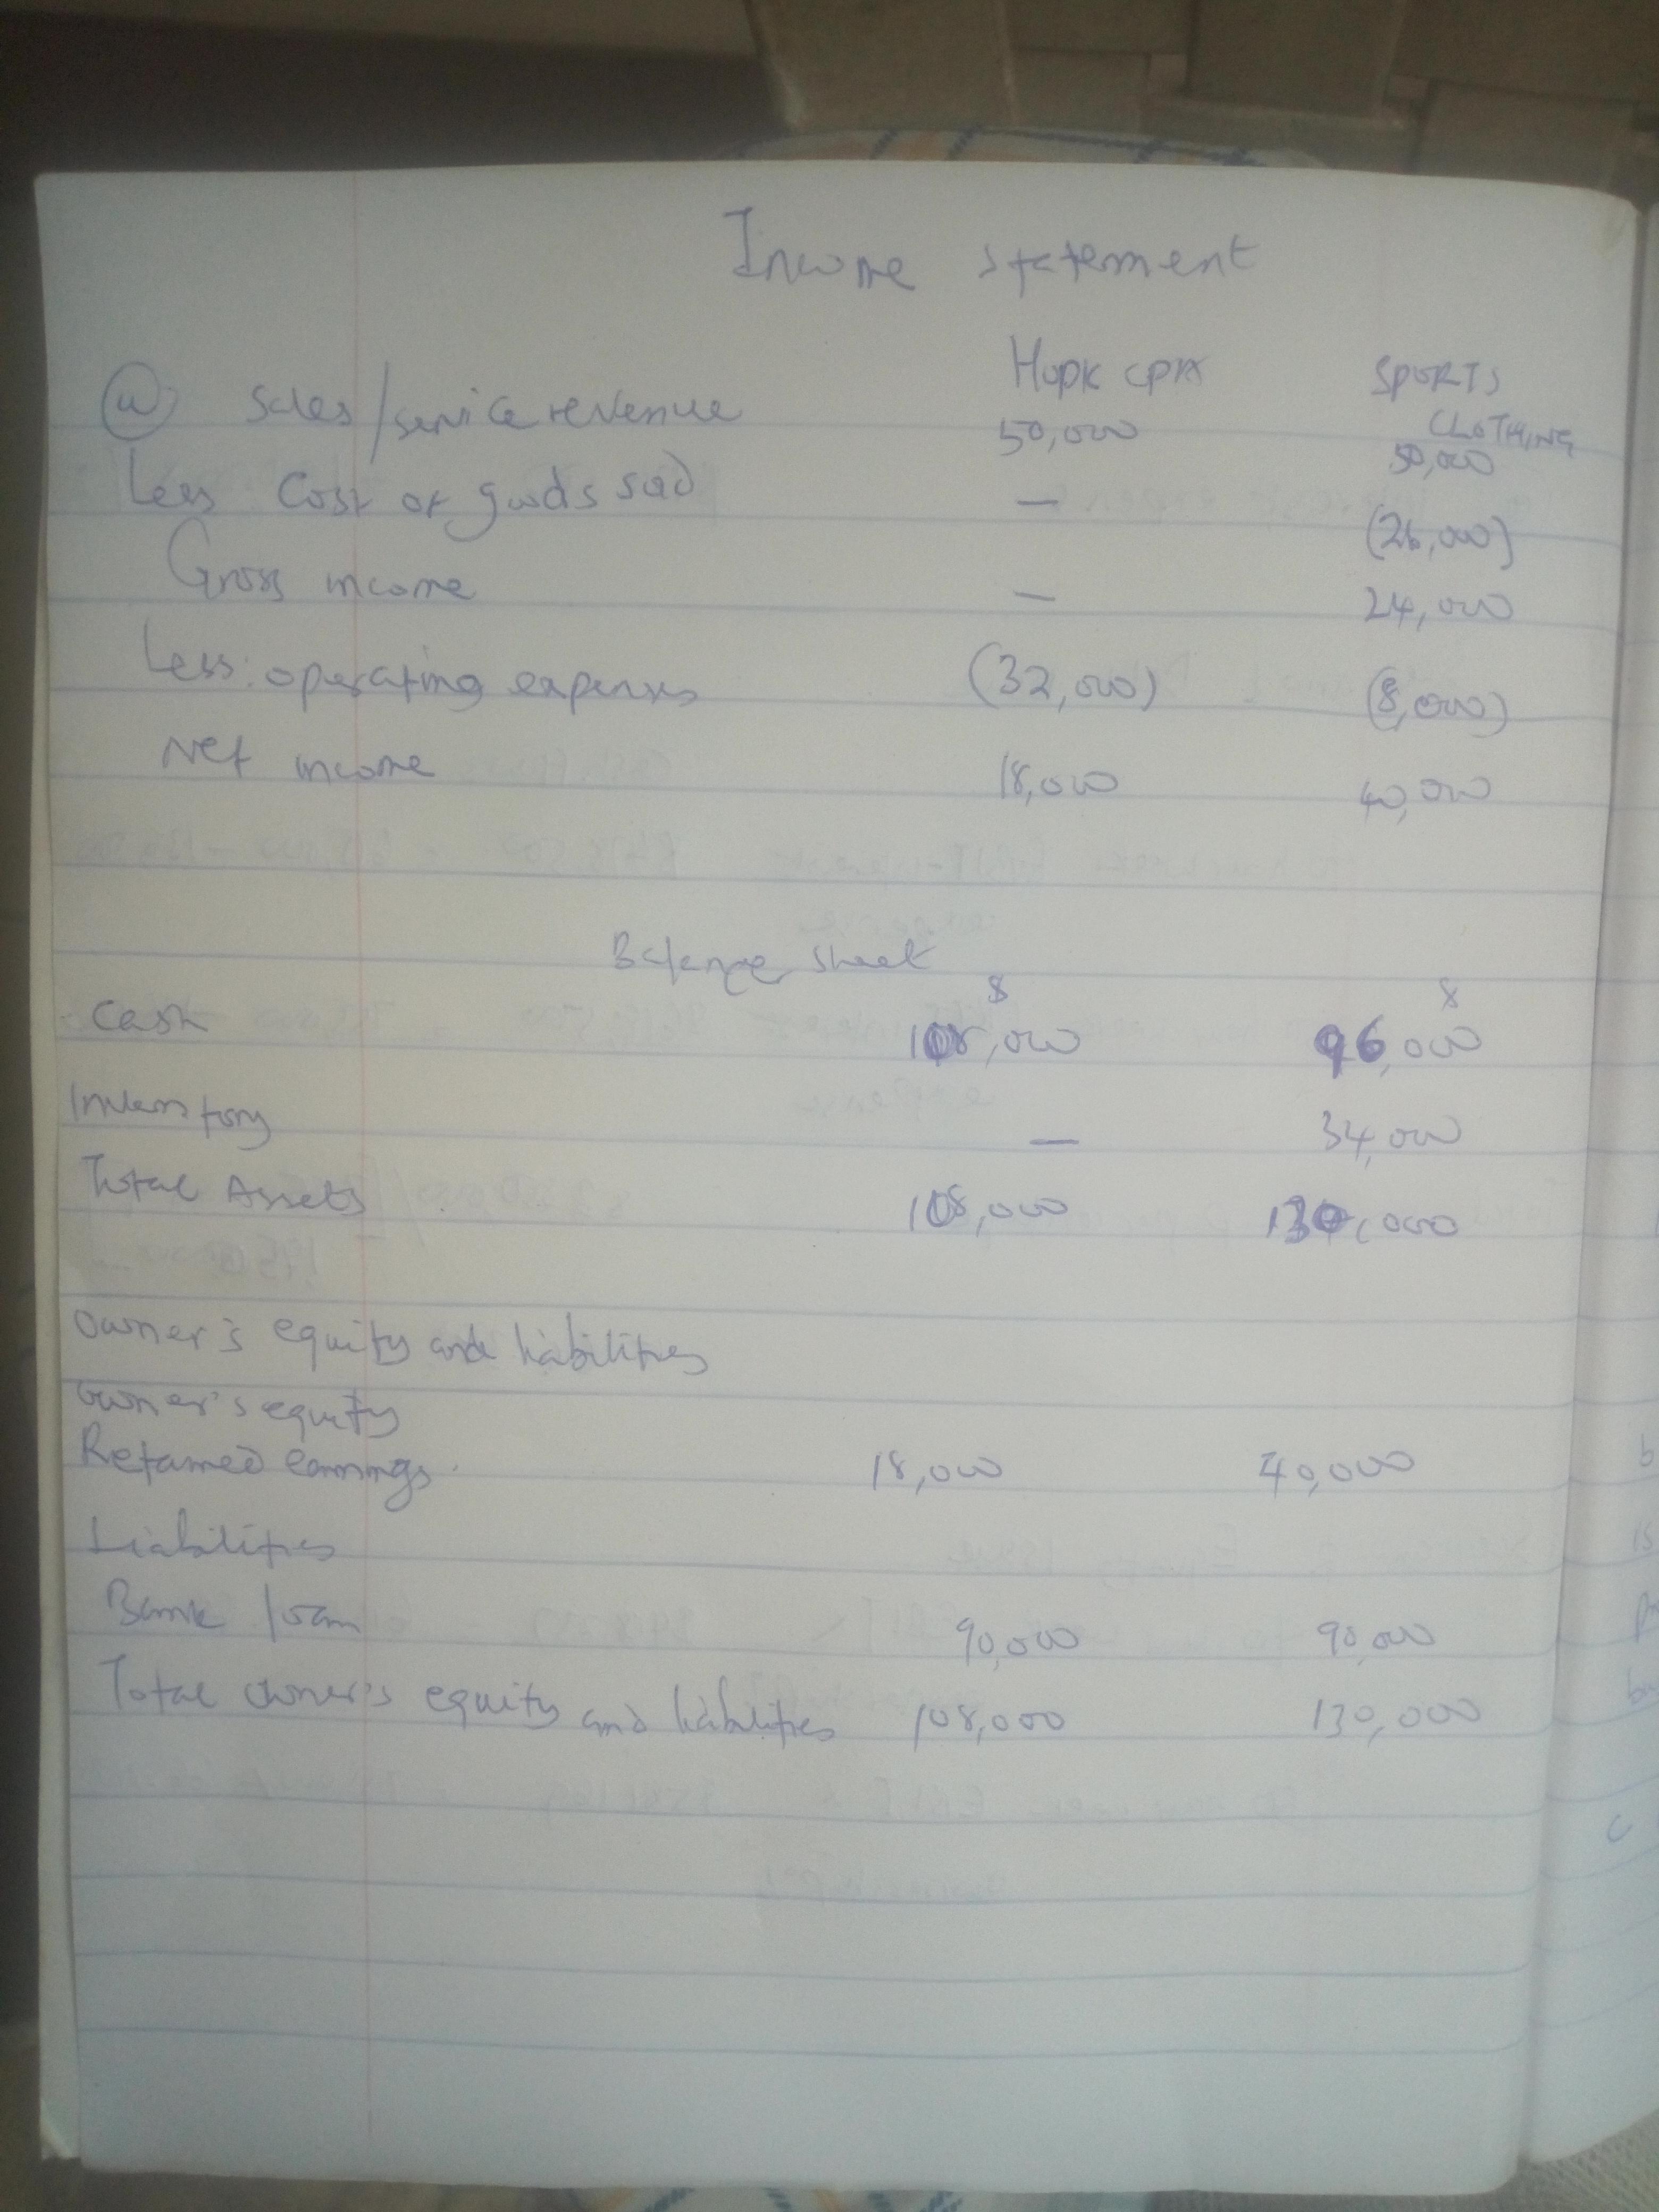 Income statement
Hopk CPA SPORTS
(a) Sales/service revenue 50,000 CLOTHING
50,000
Less Cost of goods sold — (26,000)
Gross income — 24,000
Less: operating expenses (32,000) (8,000)
Net income 18,000 40,000
Balance sheet
$ $
Cash 108,000 96,000
Inventory — 34,000
Total Assets 108,000 130,000
Owner's equity and liabilities
Owner's equity
Retained earnings 18,000 40,000
Liabilities
Bank loan 90,000 90,000
Total owner's equity and liabilities 108,000 130,000